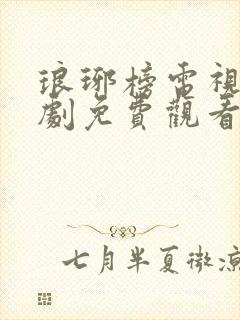 琅琊榜電視
劇免費觀看
七月半夏微涼